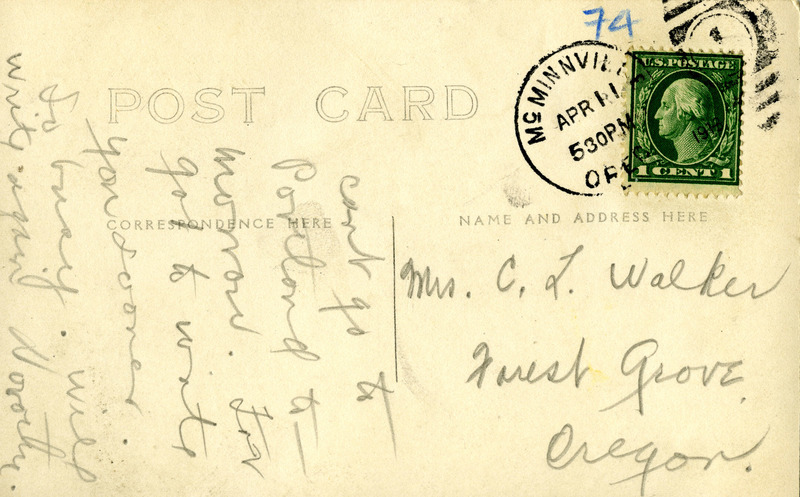 74
McMINNVILLE
APR 11
530PM
OREG.
U.S. POSTAGE
1 CENT 1
POST CARD
CORRESPONDENCE HERE
NAME AND ADDRESS HERE
cant go to
Portland to—
morrow. For
got to write
you sooner.
To busy. will
write again Dorothy.
Mrs. C. L. Walker
Forest Grove
Oregon.